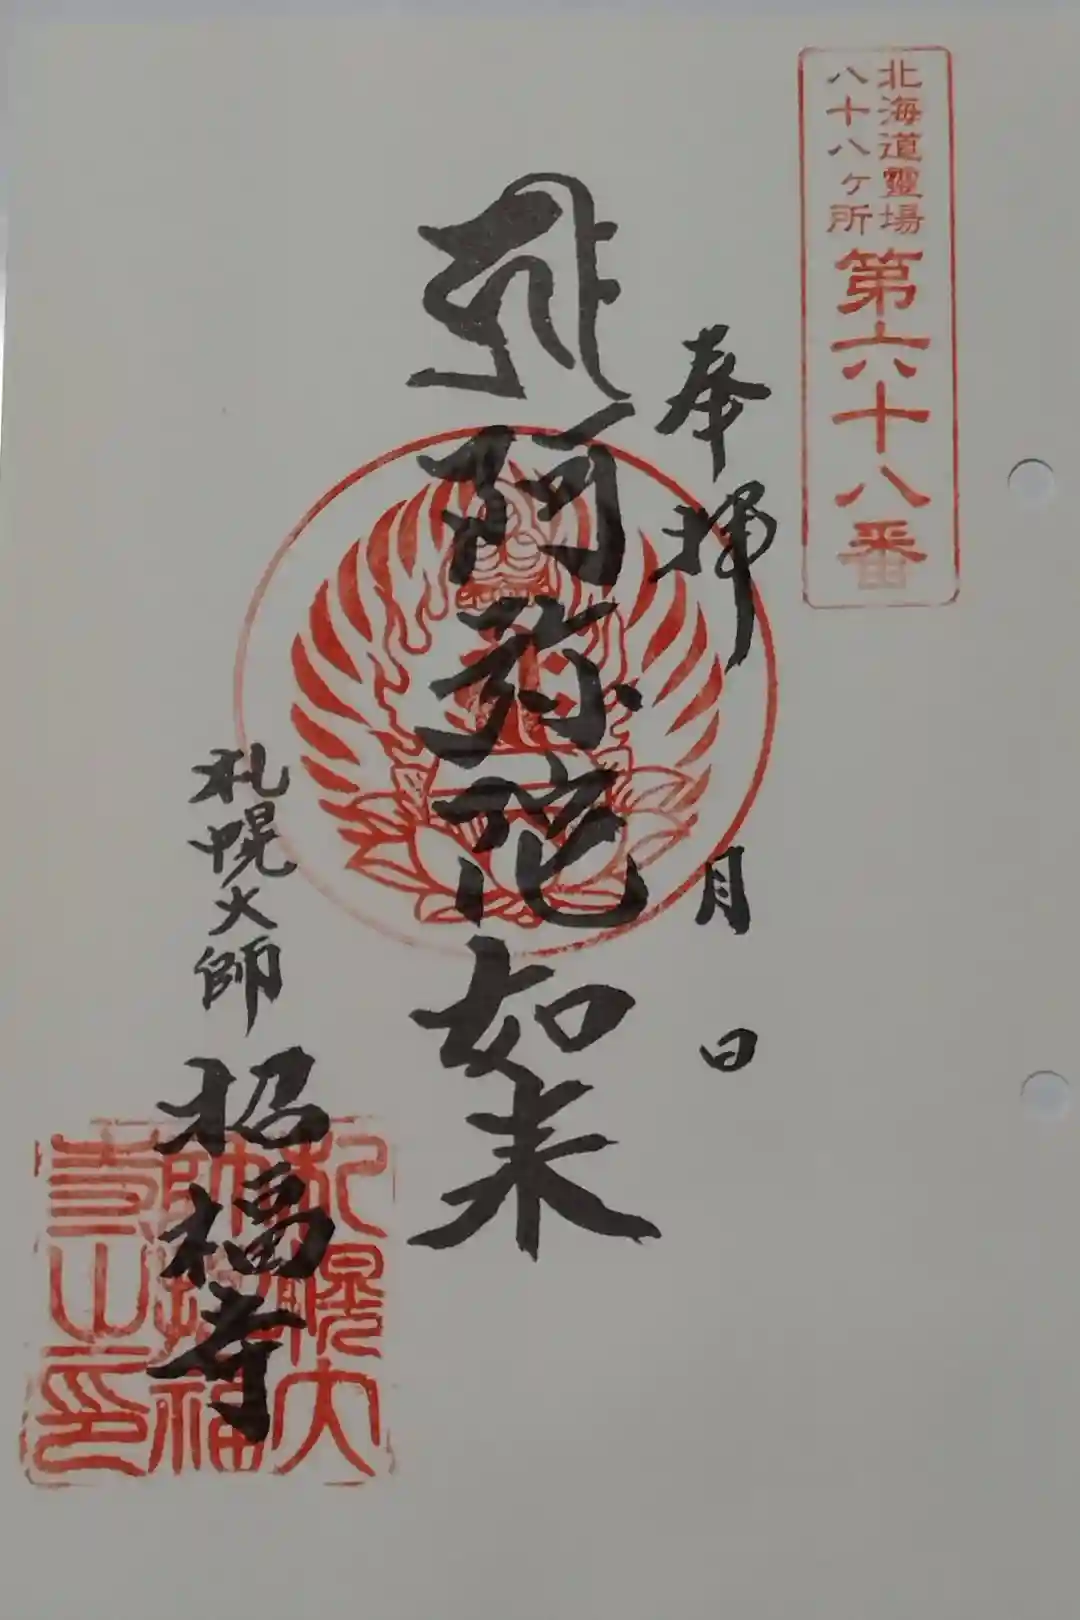 北海道靈場
八十八ヶ所
第六十八番
奉拝
月 日
阿弥陀如来
札幌大師
招福寺
札幌大
師招福
寺山印